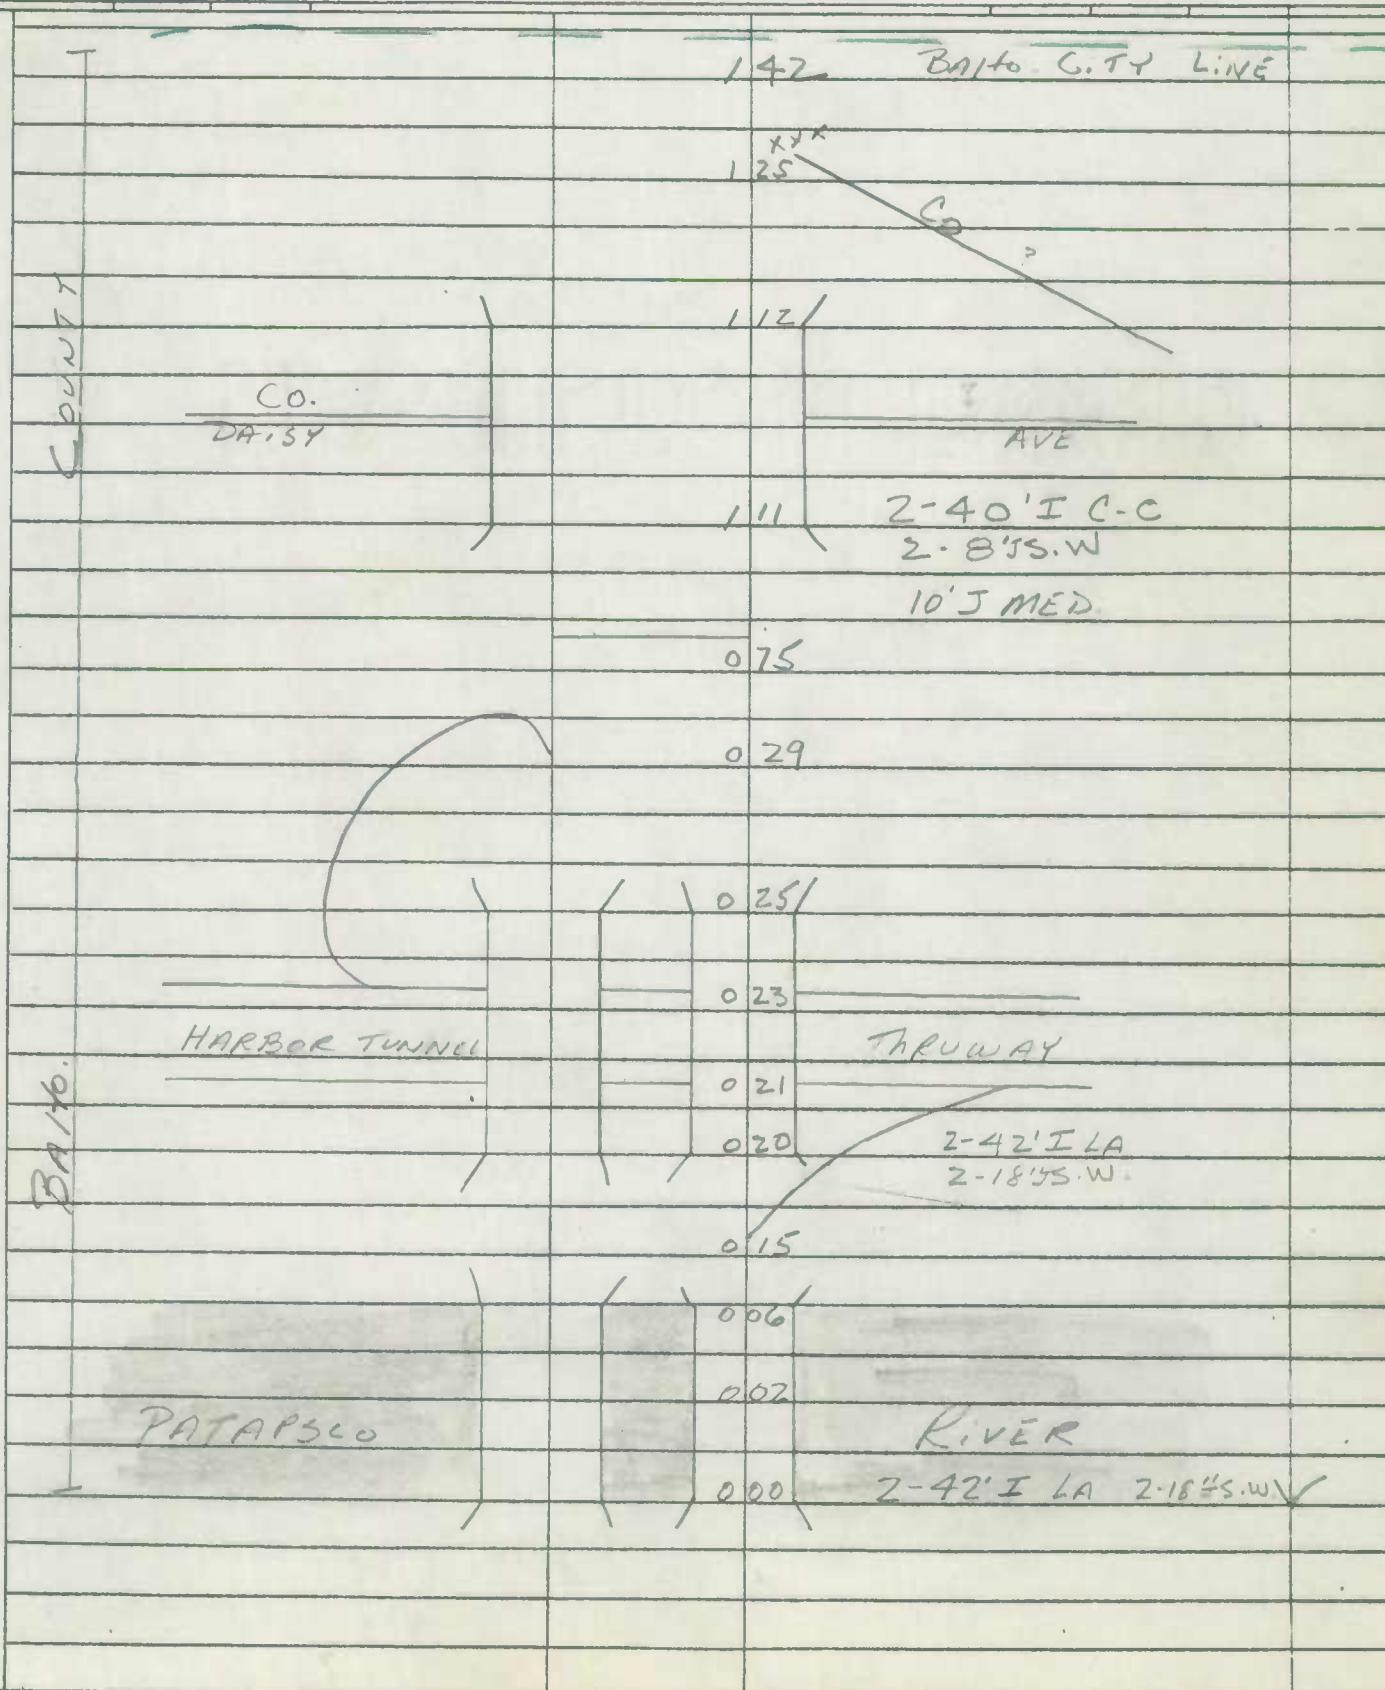 1 42 BAlto. CiTY LiNE
xxx
1 25
Co
?
1 12
COUNTY
CO.
DAiSY AVE
1 11 2-40'I C-C
2-8'JS.W
10'J MED.
0 75
0 29
0 25
0 23
HARBOR TUNNEL THRUWAY
0 21
BAlto.
0 20 2-42'I LA
2-18"JS.W.
0 15
0 06
0 02
PATAPSCO RiVER
0 00 2-42'I LA 2-18"JS.W